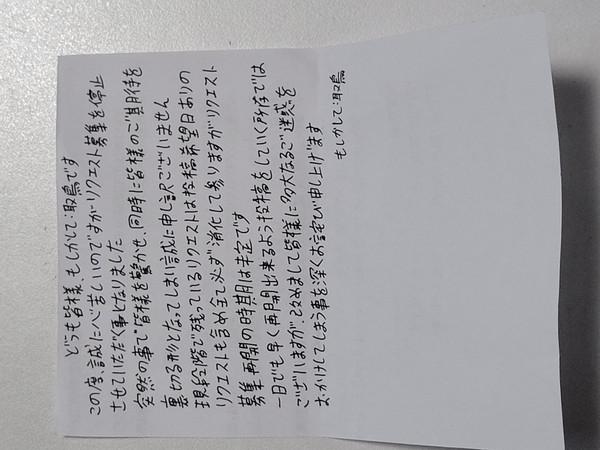 どうも皆様、もしかして:取鳥です
この度、誠に心苦しいのですがリクエスト募集を停止
させていただく事となりました
突然の事で皆様を驚かせ、同時に皆様のご期待を
裏切る形となってしまい誠に申し訳ございません
現段階で残っているリクエストは投稿希望日ありの
リクエストも含め全て必ず消化して参りますがリクエスト
募集再開の時期は未定です
一日でも早く再開出来るよう投稿をしていく所存では
ございますが、改めまして皆様に多大なるご迷惑を
おかけしてしまう事を深くお詫び申し上げます
もしかして:取鳥